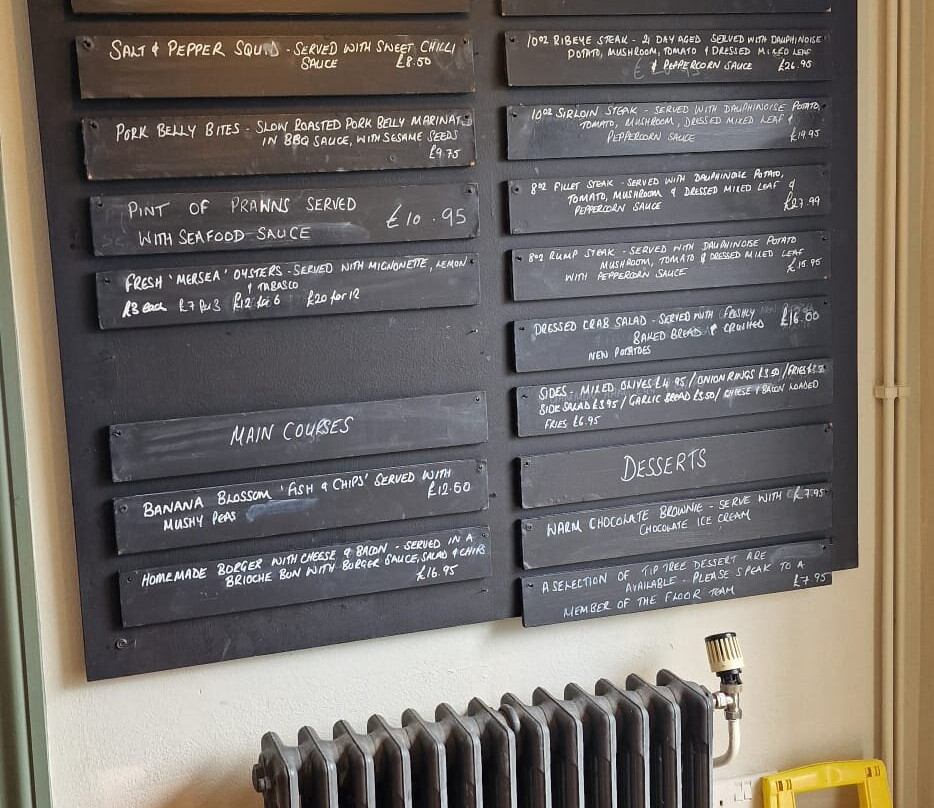 SALT & PEPPER SQUID - SERVED WITH SWEET CHILLI
SAUCE £8.50
PORK BELLY BITES - SLOW ROASTED PORK BELLY MARINATED
IN BBQ SAUCE, WITH SESAME SEEDS
£9.75
PINT OF PRAWNS SERVED
WITH SEAFOOD SAUCE £10.95
FRESH 'MERSEA' OYSTERS - SERVED WITH MIGNONETTE, LEMON
& TABASCO
£3 each £7 for 3 £12 for 6 £20 for 12
MAIN COURSES
BANANA BLOSSOM 'FISH & CHIPS' SERVED WITH
MUSHY PEAS £12.50
HOMEMADE BORGER WITH CHEESE & BACON - SERVED IN A
BRIOCHE BUN WITH BORGER SAUCE, SALAD & CHIPS
£16.95
10oz RIBEYE STEAK - 21 DAY AGED SERVED WITH DAUPHINOISE
POTATO, MUSHROOM, TOMATO & DRESSED MIXED LEAF
& PEPPERCORN SAUCE £26.95
10oz SIRLOIN STEAK - SERVED WITH DAUPHINOISE POTATO,
TOMATO, MUSHROOM, DRESSED MIXED LEAF &
PEPPERCORN SAUCE £19.95
8oz FILLET STEAK - SERVED WITH DAUPHINOISE POTATO,
TOMATO, MUSHROOM & DRESSED MIXED LEAF &
PEPPERCORN SAUCE £27.99
8oz RUMP STEAK - SERVED WITH DAUPHINOISE POTATO
MUSHROOM, TOMATO & DRESSED MIXED LEAF
WITH PEPPERCORN SAUCE £15.95
DRESSED CRAB SALAD - SERVED WITH FRESHLY £16.00
BAKED BREAD & CRUSHED
NEW POTATOES
SIDES - MIXED OLIVES £4.95 / ONION RINGS £3.50 / FRIES
SIDE SALAD £3.95 / GARLIC BREAD £3.50 / CHEESE & BACON LOADED
FRIES £6.95
DESSERTS
WARM CHOCOLATE BROWNIE - SERVE WITH £7.95
CHOCOLATE ICE CREAM
A SELECTION OF TIPTREE DESSERT ARE
AVAILABLE - PLEASE SPEAK TO A
MEMBER OF THE FLOOR TEAM £7.95